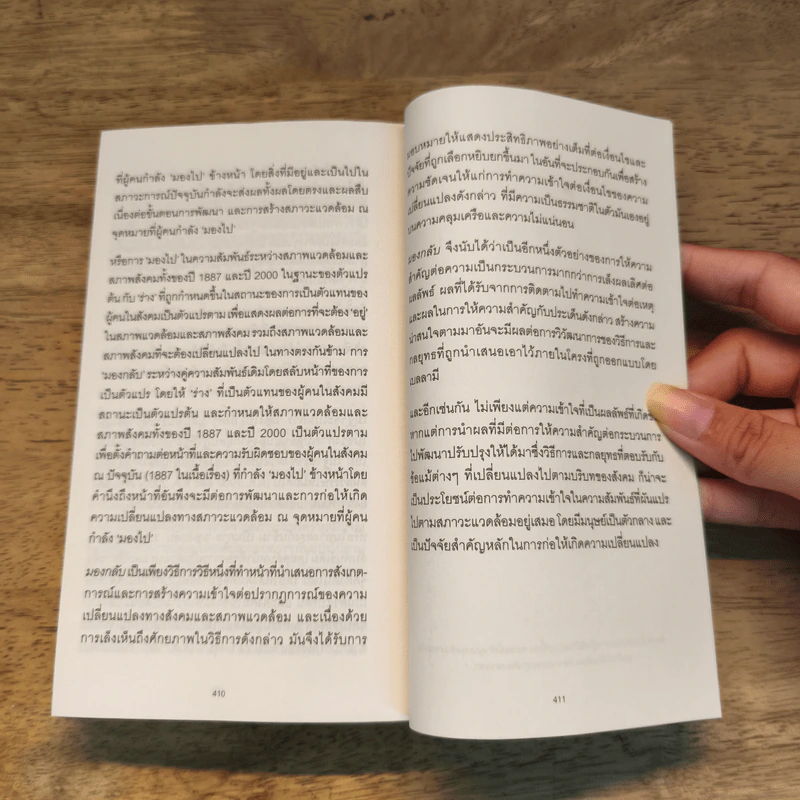 ที่ผู้คนกำลัง 'มองไป' ข้างหน้า โดยสิ่งที่มีอยู่และเป็นไปใน
สภาวะการณ์ปัจจุบันกำลังจะส่งผลทั้งผลโดยตรงและผลสืบ
เนื่องต่อขั้นตอนการพัฒนา และการสร้างสภาวะแวดล้อม ณ
จุดหมายที่ผู้คนกำลัง 'มองไป'
หรือการ 'มองไป' ในความสัมพันธ์ระหว่างสภาพแวดล้อมและ
สภาพสังคมทั้งของปี 1887 และปี 2000 ในฐานะของตัวแปร
ต้น กับ 'ร่าง' ที่ถูกกำหนดขึ้นในสถานะของการเป็นตัวแทนของ
ผู้คนในสังคมเป็นตัวแปรตาม เพื่อแสดงผลต่อการที่จะต้อง 'อยู่'
ในสภาพแวดล้อมและสภาพสังคม รวมถึงสภาพแวดล้อมและ
สภาพสังคมที่จะต้องเปลี่ยนแปลงไป ในทางตรงกันข้าม การ
'มองกลับ' ระหว่างคู่ความสัมพันธ์เดิมโดยสลับหน้าที่ของการ
เป็นตัวแปร โดยให้ 'ร่าง' ที่เป็นตัวแทนของผู้คนในสังคมมี
สถานะเป็นตัวแปรต้น และกำหนดให้สภาพแวดล้อมและ
สภาพสังคมทั้งของปี 1887 และปี 2000 เป็นตัวแปรตาม
เพื่อตั้งคำถามต่อหน้าที่และความรับผิดชอบของผู้คนในสังคม
ณ ปัจจุบัน (1887 ในเนื้อเรื่อง) ที่กำลัง 'มองไป' ข้างหน้าโดย
คำนึงถึงหน้าที่อันพึงจะมีต่อการพัฒนาและการก่อให้เกิด
ความเปลี่ยนแปลงทางสภาวะแวดล้อม ณ จุดหมายที่ผู้คน
กำลัง 'มองไป'
มองกลับ เป็นเพียงวิธีการวิธีหนึ่งที่ทำหน้าที่นำเสนอการสังเกต-
การณ์และการสร้างความเข้าใจต่อปรากฏการณ์ของความ
เปลี่ยนแปลงทางสังคมและสภาพแวดล้อม และเนื่องด้วย
การเล็งเห็นถึงศักยภาพในวิธีการดังกล่าว มันจึงได้รับการ
410
มอบหมายให้แสดงประสิทธิภาพอย่างเต็มที่ต่อเงื่อนไขและ
ปัจจัยที่ถูกเลือกหยิบยกขึ้นมา ในอันที่จะประกอบกันเพื่อสร้าง
ความชัดเจนให้แก่การทำความเข้าใจต่อเงื่อนไขของความ
เปลี่ยนแปลงดังกล่าว ที่มีความเป็นธรรมชาติในตัวมันเองอยู่
บนความคลุมเครือและความไม่แน่นอน
มองกลับ จึงนับได้ว่าเป็นอีกหนึ่งตัวอย่างของการให้ความ
สำคัญต่อความเป็นกระบวนการมากกว่าการเล็งผลเลิศต่อ
ผลลัพธ์ ผลที่ได้รับจากการติดตามไปทำความเข้าใจต่อเหตุ
และผลในการให้ความสำคัญกับประเด็นดังกล่าว สร้างความ
น่าสนใจตามมาอันจะมีผลต่อการวิวัฒนาการของวิธีการและ
กลยุทธที่ถูกนำเสนอเอาไว้ภายในโครงที่ถูกออกแบบโดย
เบลลามี
และอีกเช่นกัน ไม่เพียงแต่ความเข้าใจที่เป็นผลลัพธ์ที่เกิดขึ้น
หากแต่การนำผลที่มีต่อการให้ความสำคัญต่อกระบวนการ
ไปพัฒนาปรับปรุงให้ได้มาซึ่งวิธีการและกลยุทธที่ตอบรับกับ
ข้อแม้ต่างๆ ที่เปลี่ยนแปลงไปตามบริบทของสังคม ก็น่าจะ
เป็นประโยชน์ต่อการทำความเข้าใจในความสัมพันธ์ที่ผันแปร
ไปตามสภาวะแวดล้อมอยู่เสมอ โดยมีมนุษย์เป็นตัวกลาง และ
เป็นปัจจัยสำคัญหลักในการก่อให้เกิดความเปลี่ยนแปลง
411